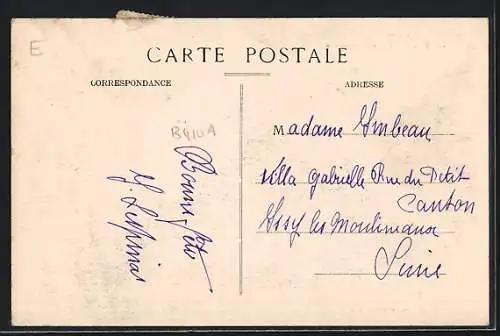 E
CARTE POSTALE
CORRESPONDANCE
ADRESSE
Bonne fête
Madame
Villa Gabrielle Rue du Petit
Canton
Issy les Moulineaux
Seine